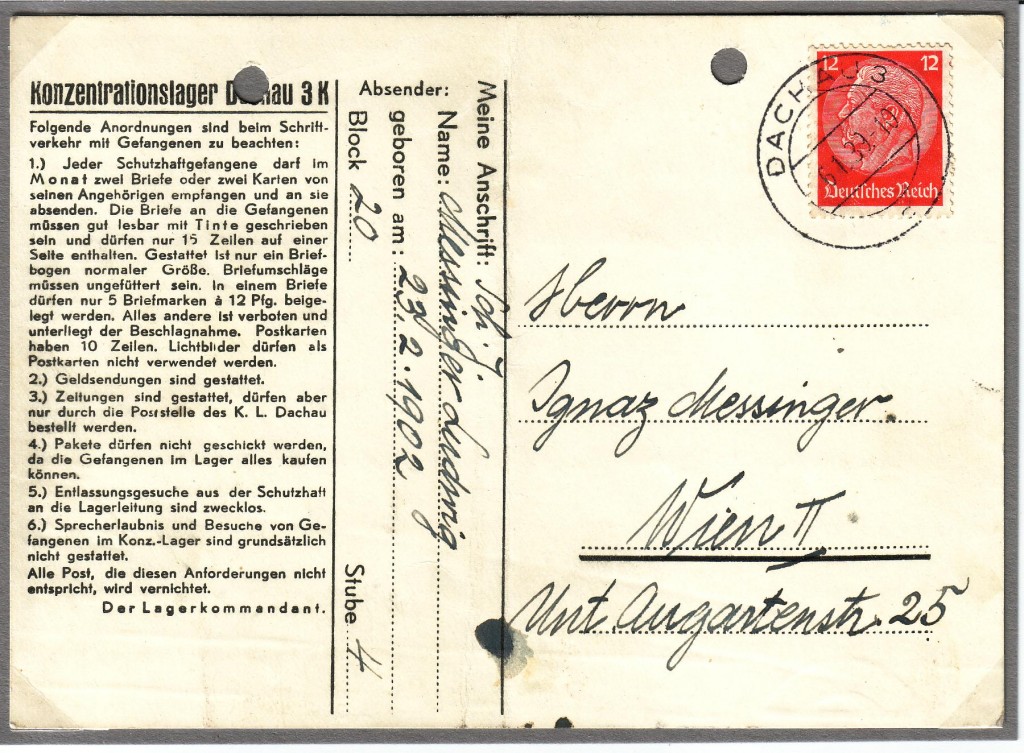 Konzentrationslager Dachau 3 K
Folgende Anordnungen sind beim Schrift-
verkehr mit Gefangenen zu beachten:
1.) Jeder Schutzhaftgefangene darf im
Monat zwei Briefe oder zwei Karten von
seinen Angehörigen empfangen und an sie
absenden. Die Briefe an die Gefangenen
müssen gut lesbar mit Tinte geschrieben
sein und dürfen nur 15 Zeilen auf einer
Seite enthalten. Gestattet ist nur ein Brief-
bogen normaler Größe. Briefumschläge
müssen ungefüttert sein. In einem Briefe
dürfen nur 5 Briefmarken à 12 Pfg. beige-
legt werden. Alles andere ist verboten und
unterliegt der Beschlagnahme. Postkarten
haben 10 Zeilen. Lichtbilder dürfen als
Postkarten nicht verwendet werden.
2.) Geldsendungen sind gestattet.
3.) Zeitungen sind gestattet, dürfen aber
nur durch die Poststelle des K. L. Dachau
bestellt werden.
4.) Pakete dürfen nicht geschickt werden,
da die Gefangenen im Lager alles kaufen
können.
5.) Entlassungsgesuche aus der Schutzhaft
an die Lagerleitung sind zwecklos.
6.) Sprecherlaubnis und Besuche von Ge-
fangenen im Konz.-Lager sind grundsätzlich
nicht gestattet.
Alle Post, die diesen Anforderungen nicht
entspricht, wird vernichtet.
Der Lagerkommandant.
Absender:
Meine Anschrift: Sch. J.
Name: Messinger Ludwig
geboren am: 23. 2. 1902
Block 20 Stube 4
DACHAU 3
6.1.39.-18
12 12
Deutsches Reich
Herrn
Ignaz Messinger
Wien II
Unt. Augartenstr. 25